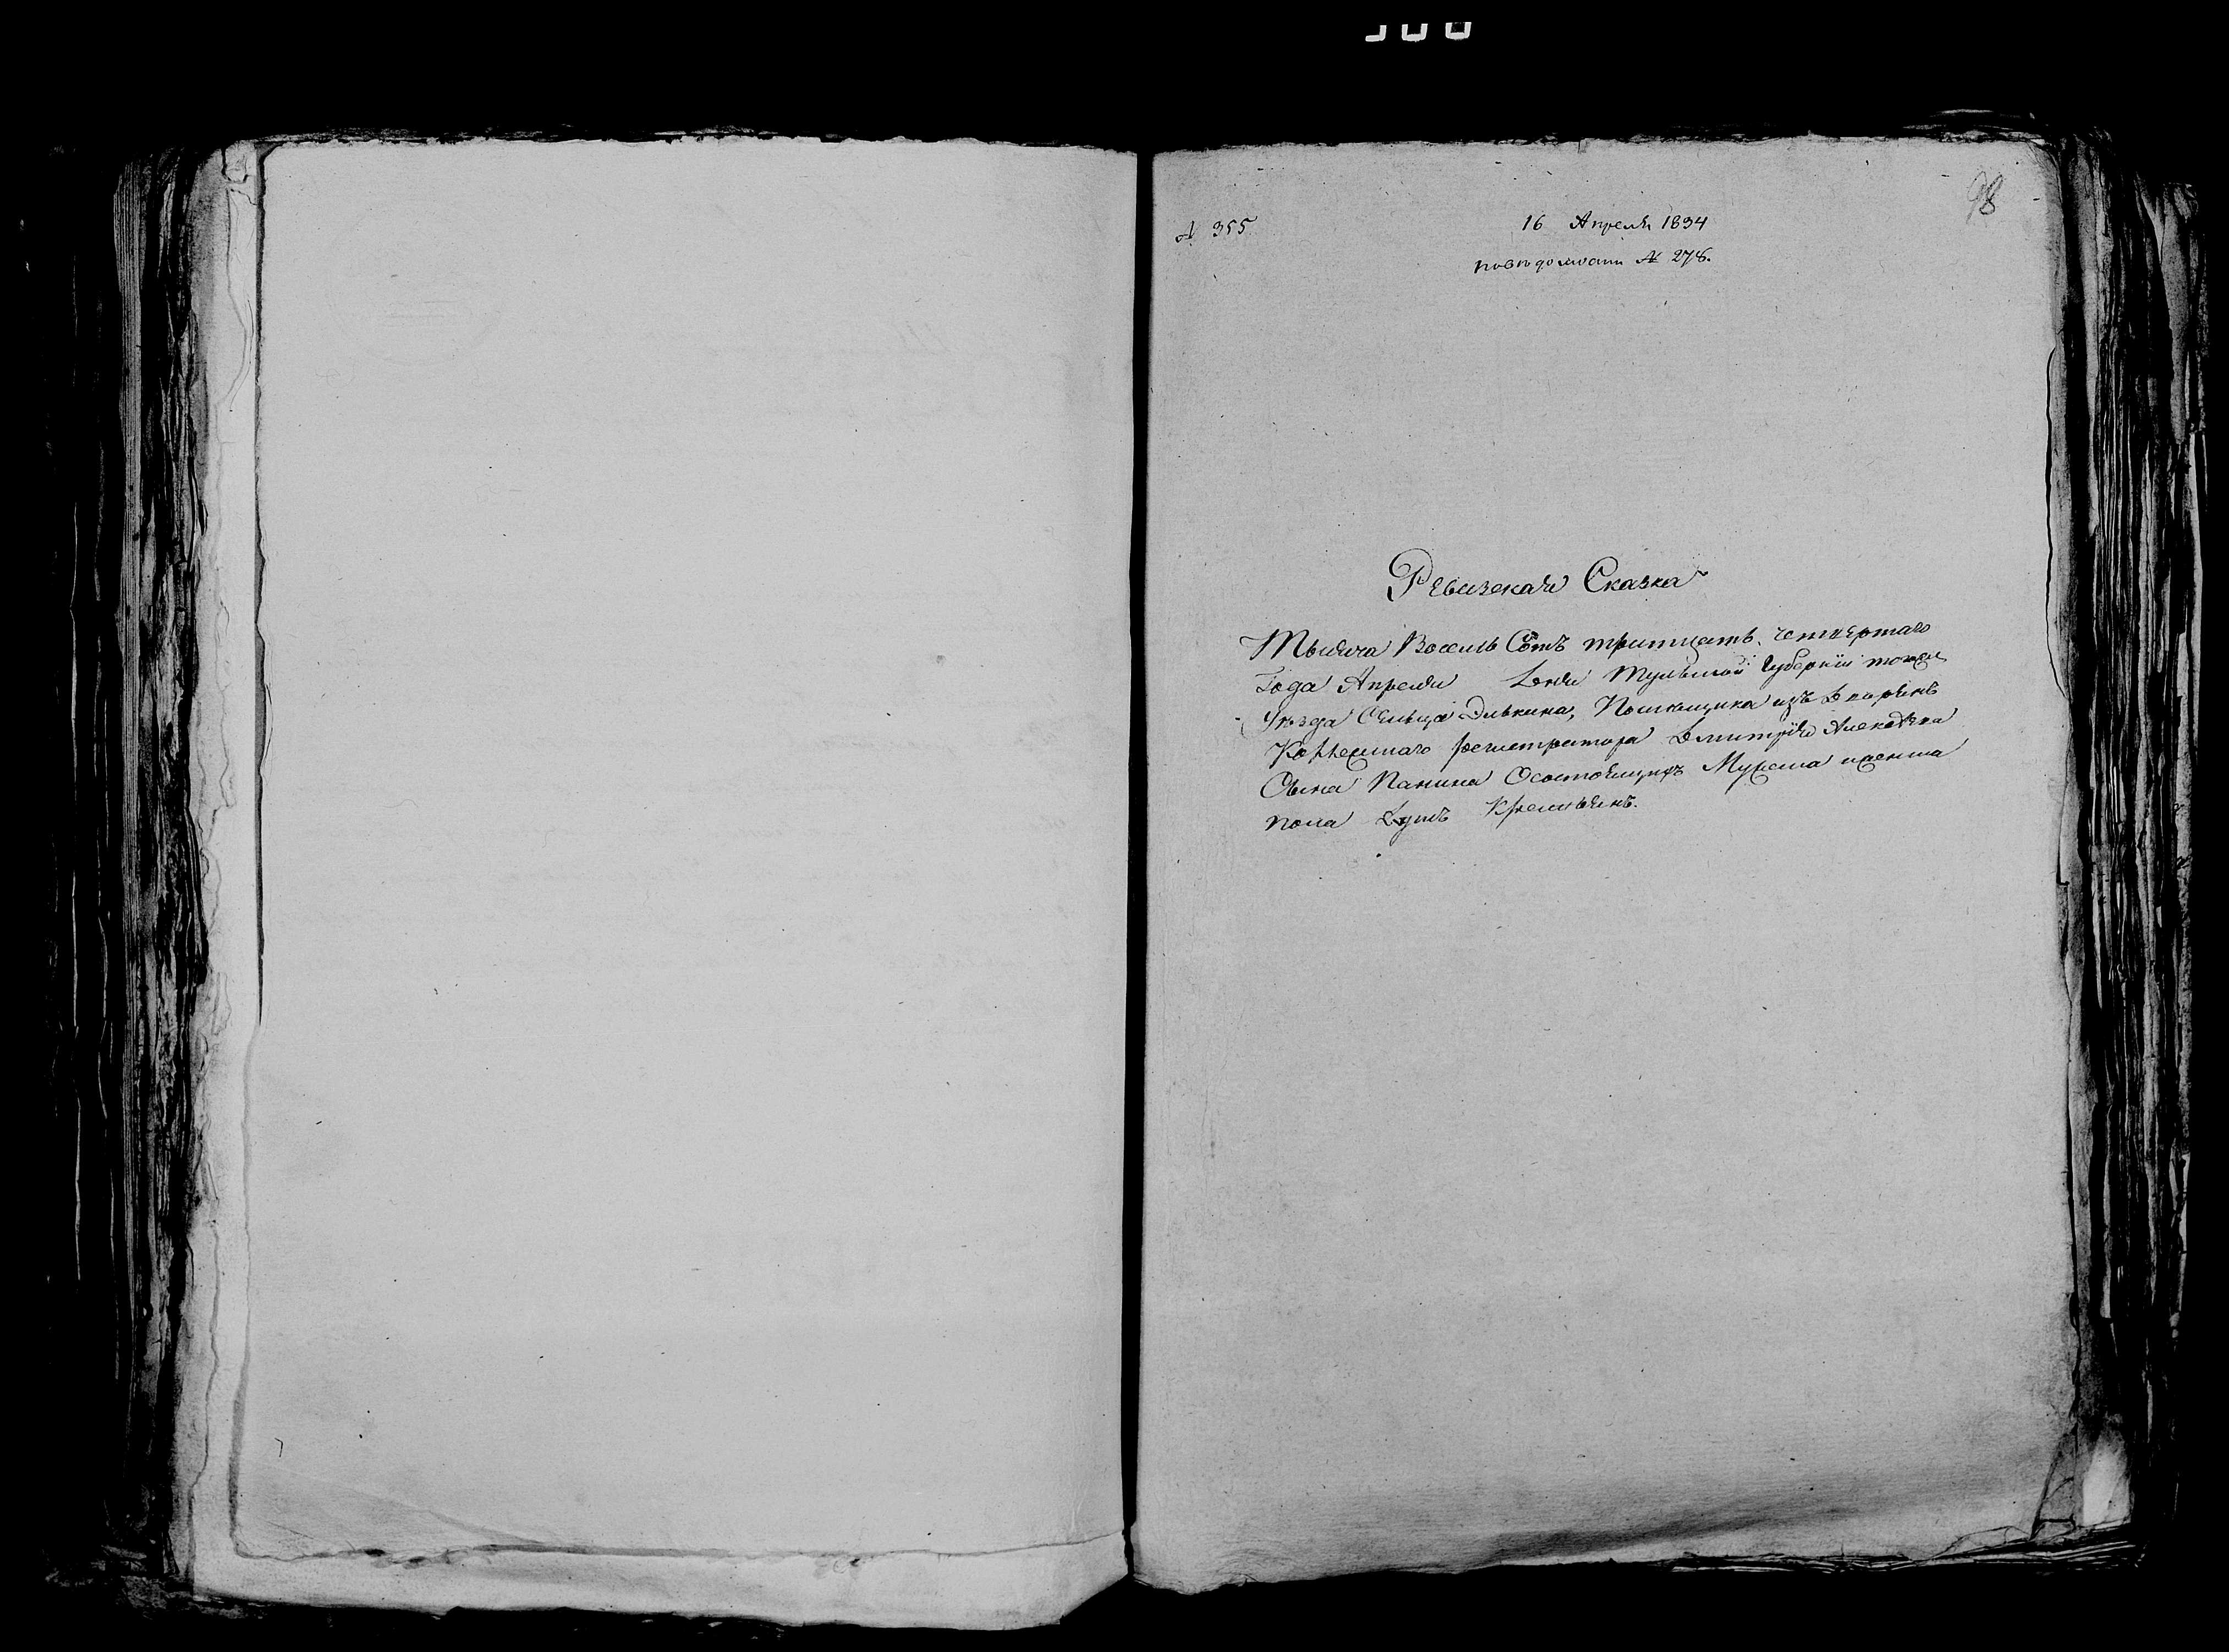 98
№ 355
16 Апреля 1834
по ведомости № 278.
Ревизская Сказка
Тысяча Восемь Сотъ тритцать четвертаго
Года Апреля Дня Тульской Губернiи тогожъ
Уезда Сельца Помещика изъ Дворянъ
Колежскаго регистратора Дмитрiя Алексеева
Сына Панина Осостоящихъ Мужеска иженска
пола Душъ Крестьянъ.